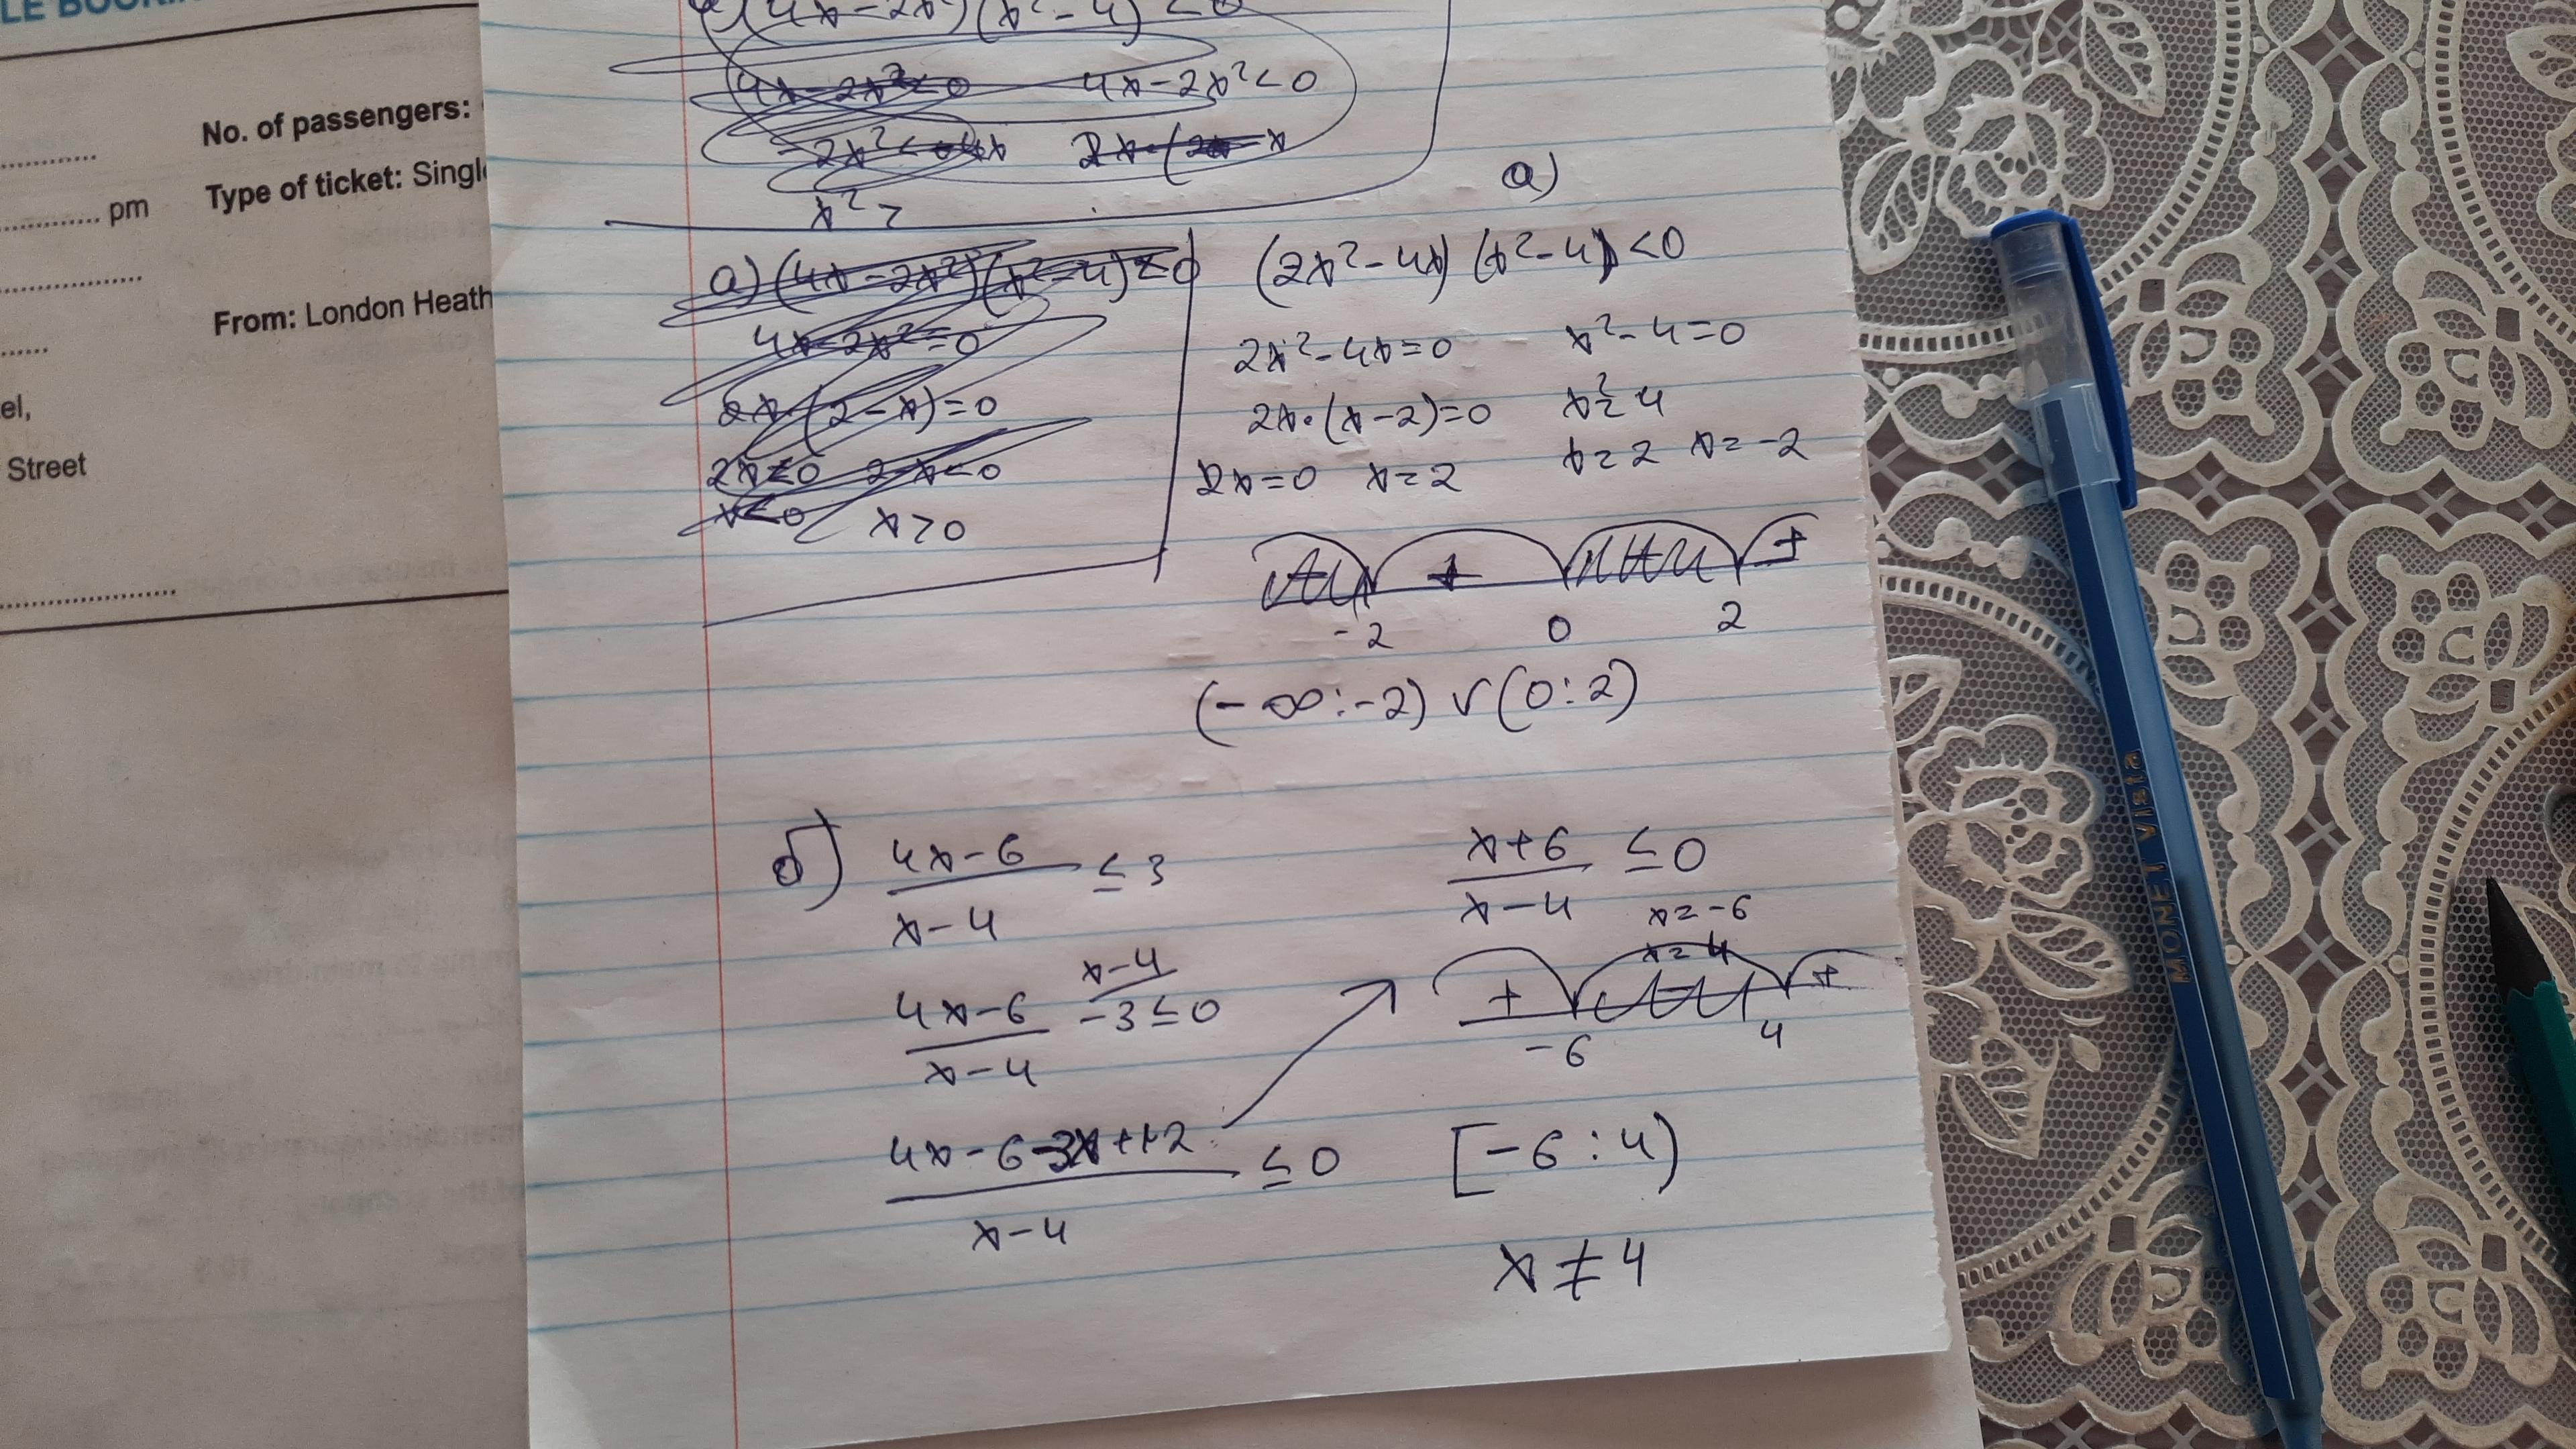 No. of passengers:
pm
Type of ticket: Single
From: London Heath
el,
Street
(4x-2x²)(x²-4)<0
4x-2x²<0 4x-2x²<0
-2x²<-4x
x²>
a) (4x-2x²)(x²-4)<0
4x-2x²=0
2x·(2-x)=0
2x<0 2-x<0
x<0 x>0
a)
(2x²-4x)(x²-4)<0
2x²-4x=0 x²-4=0
2x·(x-2)=0 x²=4
2x=0 x=2 x=2 x=-2
+ +
-2 0 2
(-∞:-2) ∨ (0:2)
б) 4x-6 ≤ 3
x-4
x-4
4x-6 -3≤0
x-4
4x-6-3x+12 ≤0
x-4
x+6 ≤0
x-4 x=-6
x=4
+ +
-6 4
[-6:4)
x≠4
MONET Vista